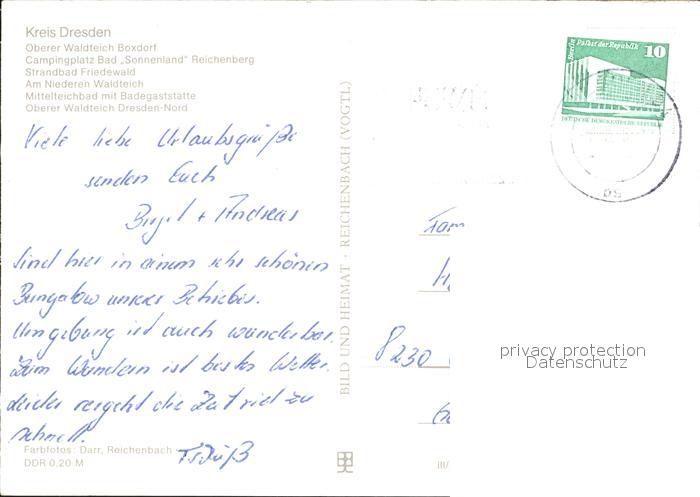 Kreis Dresden
Oberer Waldteich Boxdorf
Campingplatz Bad „Sonnenland" Reichenberg
Strandbad Friedewald
Am Niederen Waldteich
Mittelteichbad mit Badegaststätte
Oberer Waldteich Dresden-Nord
Viele liebe Urlaubsgrüße
senden Euch
Birgit + Andreas
Sind hier in einem sehr schönen
Bungalow unseres Betriebes.
Umgebung ist auch wunderbar.
Zum Wandern ist bestes Wetter.
Leider vergeht die Zeit viel zu
schnell.
Tschüß
Farbfotos: Darr, Reichenbach
DDR 0,20 M
BILD UND HEIMAT · REICHENBACH (VOGTL)
III/
Berlin Palast der Republik 10
DEUTSCHE DEMOKRATISCHE REPUBLIK
Fam
8230
privacy protection
Datenschutz